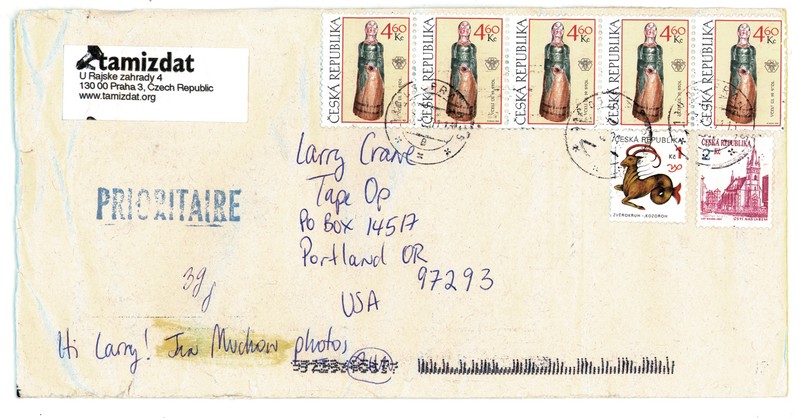 tamizdat
U Rajske zahrady 4
130 00 Praha 3, Czech Republic
www.tamizdat.org
ČESKÁ REPUBLIKA 4 60 Kč
ČESKÁ REPUBLIKA 4 60 Kč
ČESKÁ REPUBLIKA 4 60 Kč
ČESKÁ REPUBLIKA 4 60 Kč
ČESKÁ REPUBLIKA 4 60 Kč
ČESKÁ REPUBLIKA
Kč 1
ZVĚROKRUH - KOZOROH
ČESKÁ REPUBLIKA
2 Kč
ÚSTÍ NAD LABEM
Larry Crane
Tape Op
PO Box 14517
Portland OR
97293
USA
PRIORITAIRE
39g
Hi Larry! photos